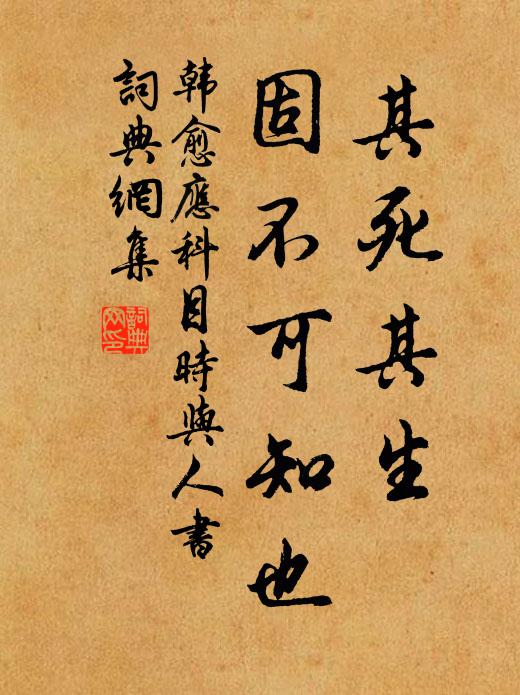 其死其生
固不可知也
韩愈應科目時與人書
詞典網集
詞典網印